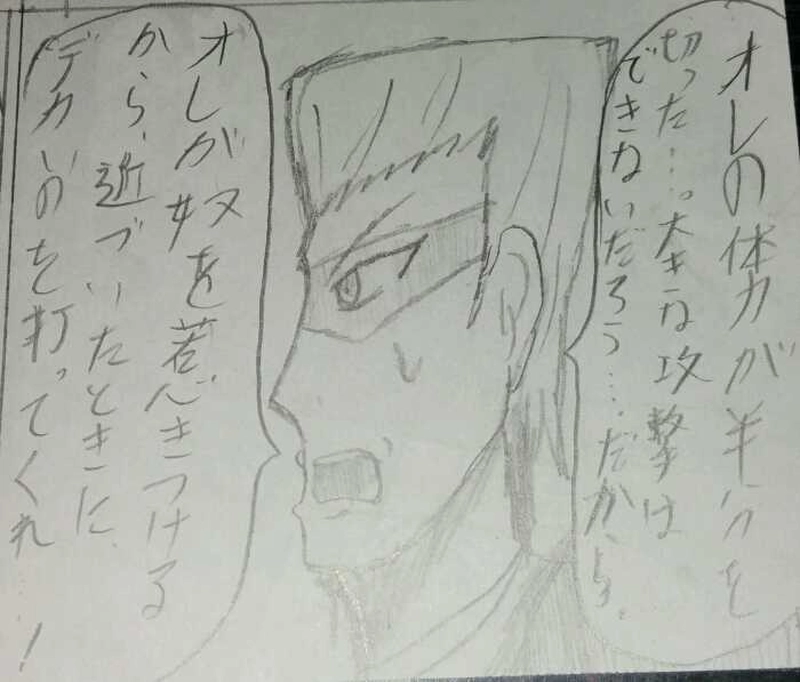 オレの体力が半分を
切った…。大きな攻撃は
できないだろう…。だから、
オレが奴を惹きつける
から、近づいたときに、
デカいのを打ってくれ…！